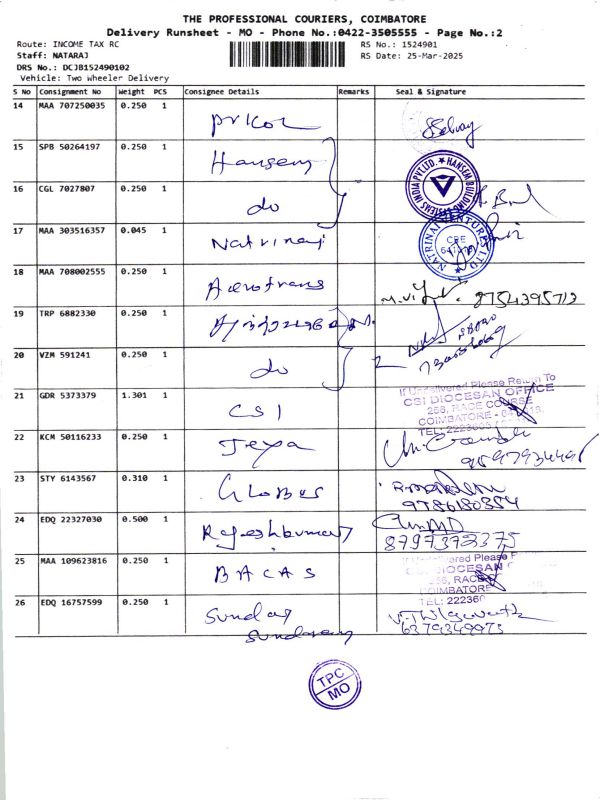 THE PROFESSIONAL COURIERS, COIMBATORE
Delivery Runsheet - MO - Phone No.:0422-3505555 - Page No.:2
Route: INCOME TAX RC
RS No.: 1524901
Staff: NATARAJ
RS Date: 25-Mar-2025
DRS No.: DCJB152490102
Vehicle: Two Wheeler Delivery
S No Consignment No Weight PCS Consignee Details Remarks Seal & Signature
14 MAA 707250035 0.250 1
15 SPB 50264197 0.250 1 Hansem
HANSEM BUILDING SYSTEMS INDIA PVT LTD.
16 CGL 7027807 0.250 1 do
17 MAA 303516357 0.045 1 Natrinai
NATRINAI VENTURE LTD
CBE
18 MAA 708002555 0.250 1 Aerotrans
9754395713
19 TRP 6882330 0.250 1
20 VZM 591241 0.250 1 do
21 GDR 5373379 1.301 1 CSI
If Undelivered Please Return To
CSI DIOCESAN OFFICE
256, RACE COURSE
COIMBATORE -
TEL:
22 KCM 50116233 0.250 1 Jeya
23 STY 6143567 0.310 1 Globus
9786180354
24 EDQ 22327030 0.500 1 Rajeshkumar
8797372375
25 MAA 109623816 0.250 1 BACAS
Undelivered Please
CSI DIOCESAN
256, RACE
COIMBATORE
TEL:
26 EDQ 16757599 0.250 1 Sunday
Sundaram
6379349973
TPC
MO